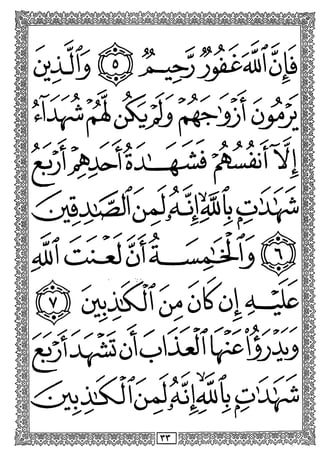 فَإِنَّ ٱللَّهَ غَفُورٌ رَّحِيمٌ ٥ وَٱلَّذِينَ
يَرْمُونَ أَزْوَٰجَهُمْ وَلَمْ يَكُن لَّهُمْ شُهَدَآءُ
إِلَّآ أَنفُسُهُمْ فَشَهَٰدَةُ أَحَدِهِمْ أَرْبَعُ
شَهَٰدَٰتٍۭ بِٱللَّهِ إِنَّهُۥ لَمِنَ ٱلصَّٰدِقِينَ
٦ وَٱلْخَٰمِسَةُ أَنَّ لَعْنَتَ ٱللَّهِ
عَلَيْهِ إِن كَانَ مِنَ ٱلْكَٰذِبِينَ ٧
وَيَدْرَؤُا۟ عَنْهَا ٱلْعَذَابَ أَن تَشْهَدَ أَرْبَعَ
شَهَٰدَٰتٍۭ بِٱللَّهِ إِنَّهُۥ لَمِنَ ٱلْكَٰذِبِينَ
٣٣